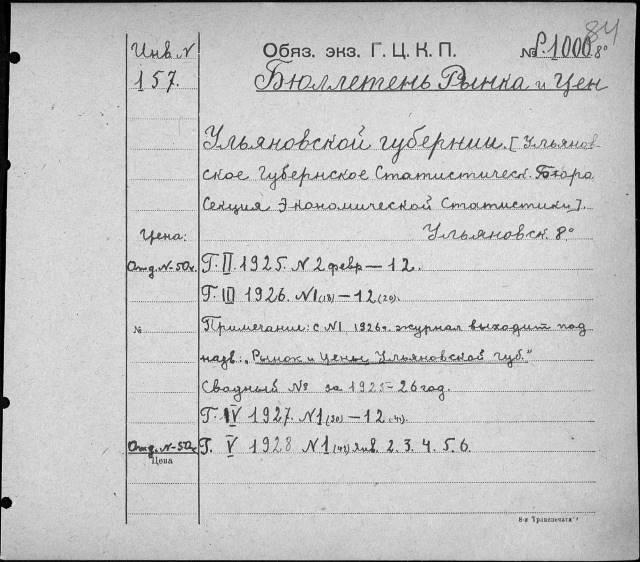 84
Инв. N Обяз. экз. Г. Ц. К. П. № Р.1000 8°
157. Бюллетень Рынка и Цен
Ульяновской губернии. [Ульянов-
ское Губернское Статистическ. Бюро
Секция Экономической Статистики].
Цена: Ульяновск. 8°
Отд. N-50к. Г. II. 1925. N 2 февр — 12.
Г. III 1926. N1(18)—12(29).
№ Примечание: с N1 1926г. журнал выходит под
назв: „Рынок и Цены Ульяновской губ."
Сводный № за 1925-26 год.
Г. IV 1927. N1(30)—12(41).
Отд. N-50к Г. V 1928 N1(42) янв. 2. 3. 4. 5. 6.
Цена
8-я "Транспечати"